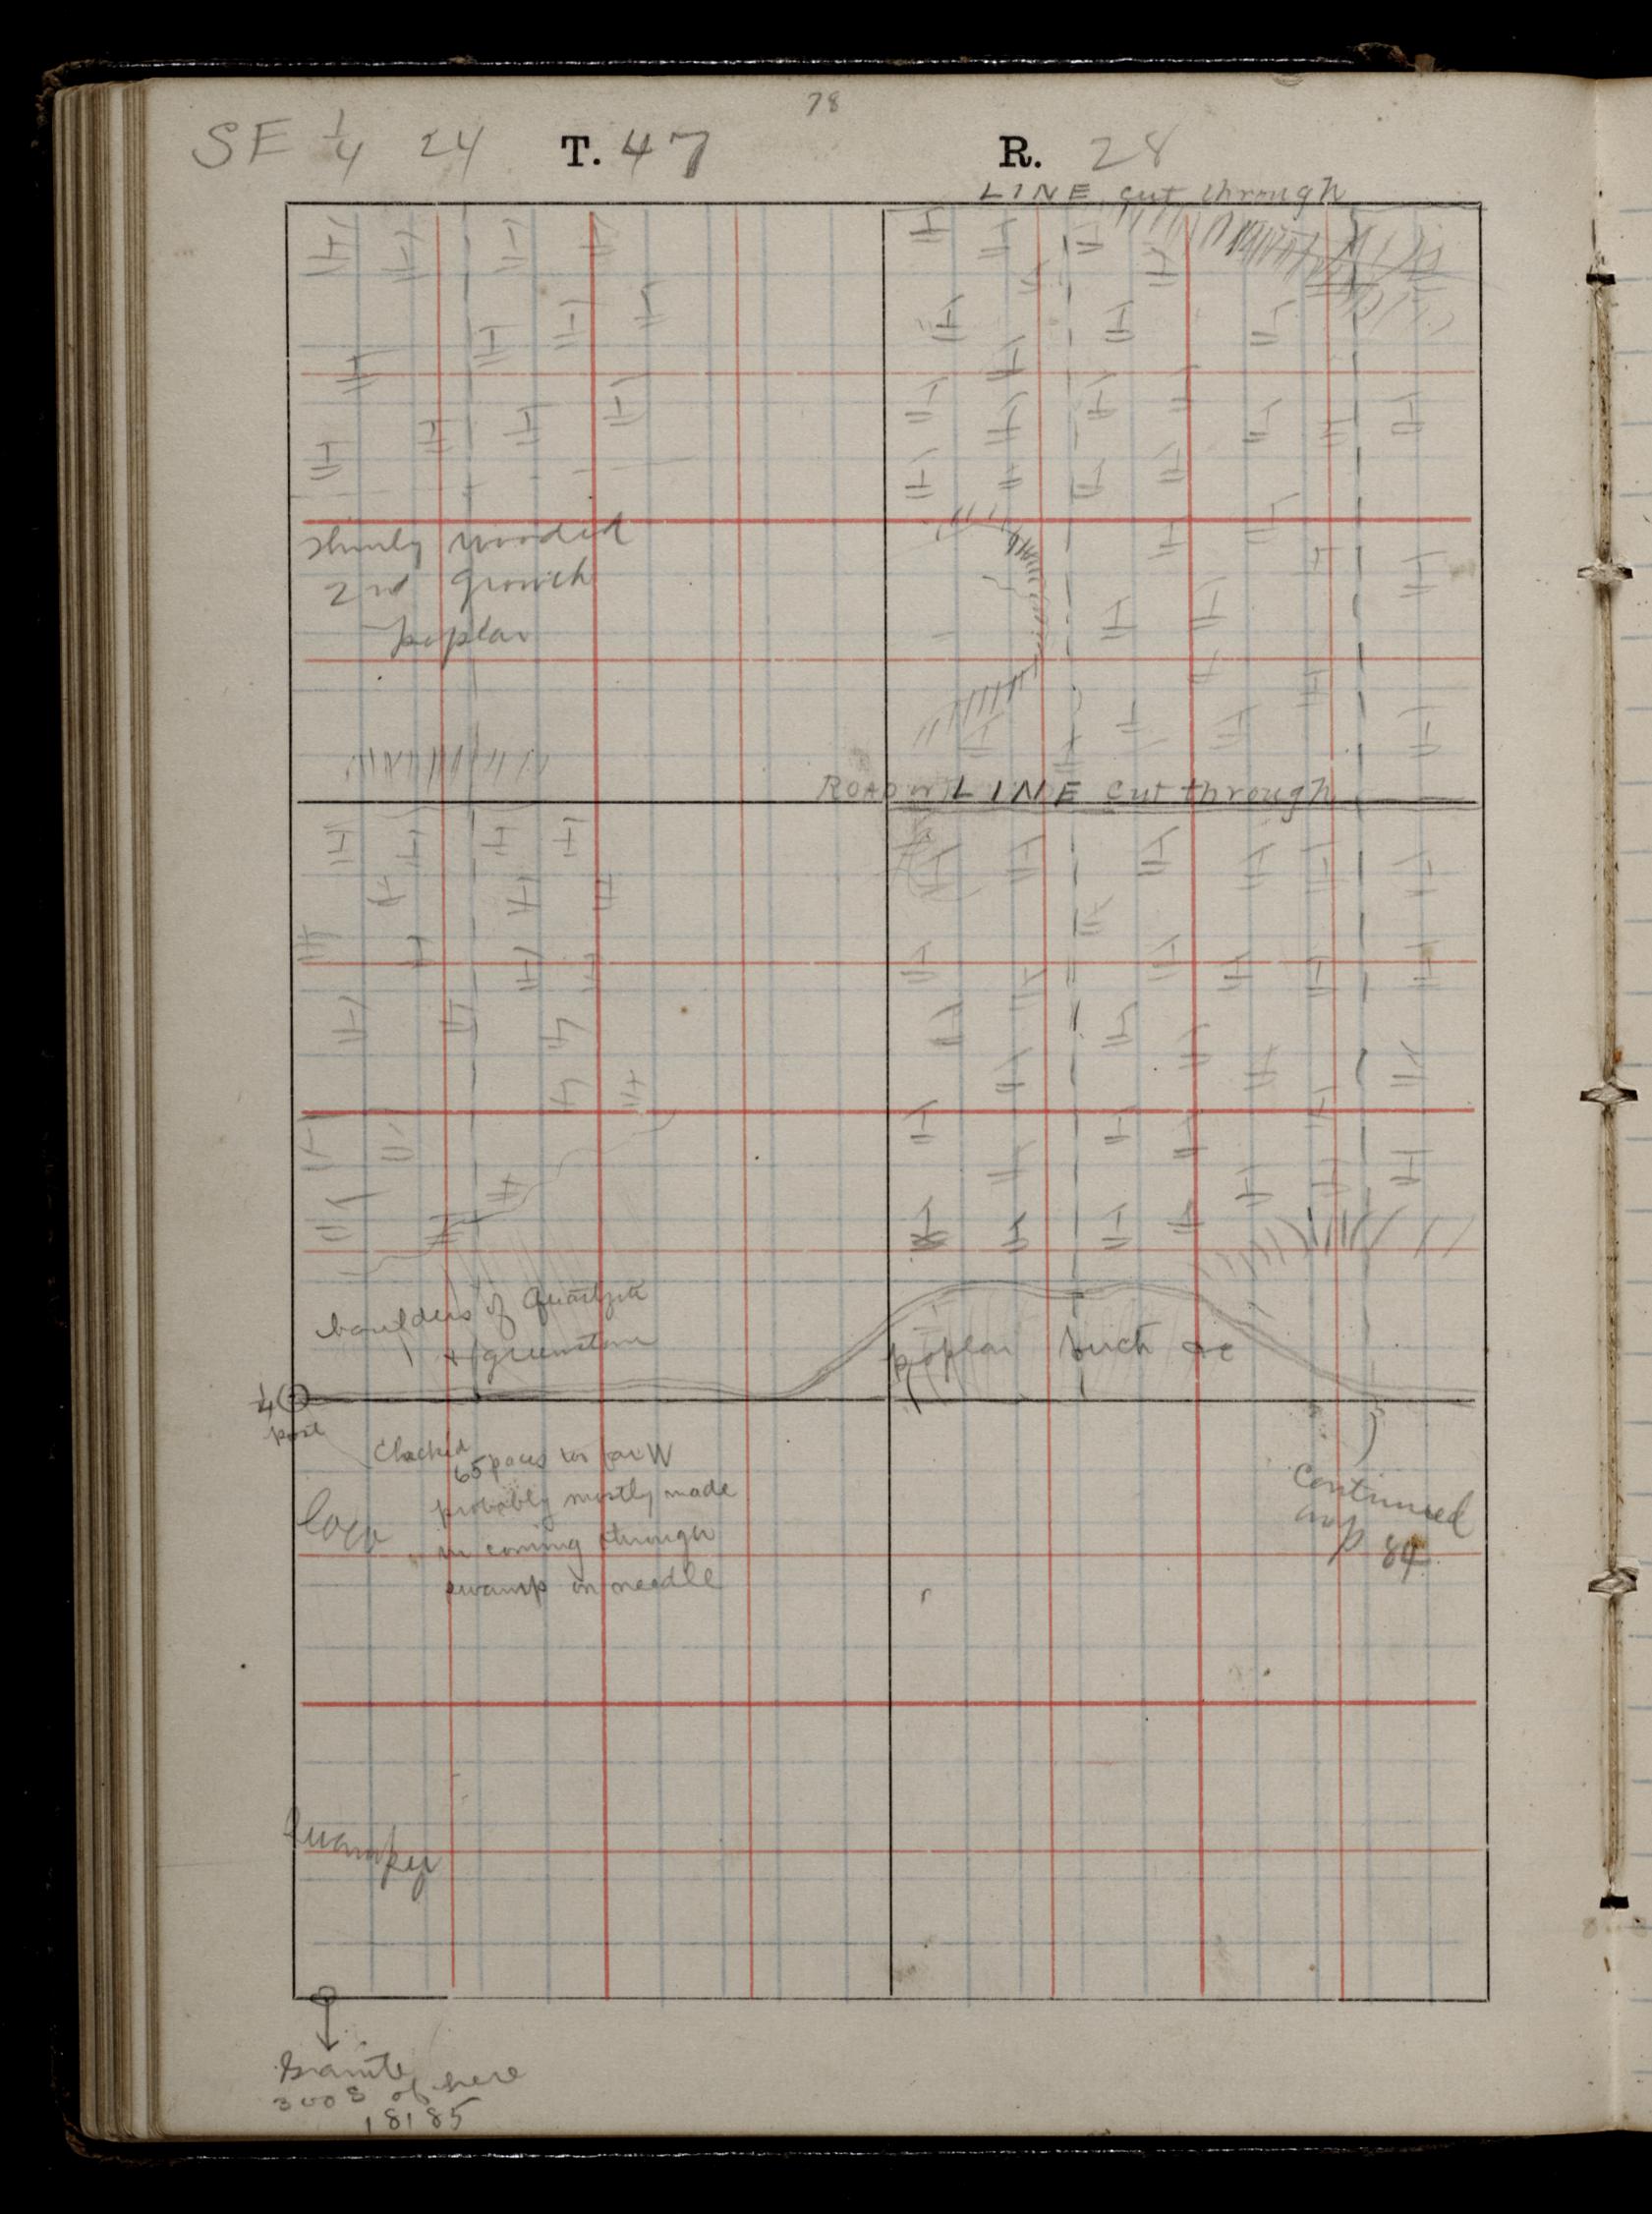 78
SE 1/4 24 T. 47 R. 28
LINE cut through
wooded
2nd growth
poplar
ROAD or LINE cut through
boulders of Quartzite
+ greenstone
poplar birch &c
1/4
post
Checked
65 paces too far W
probably mostly made
in coming through
swamp on needle
Low
Continued
on p 84
Swampy
Granite
300 S of here
18185